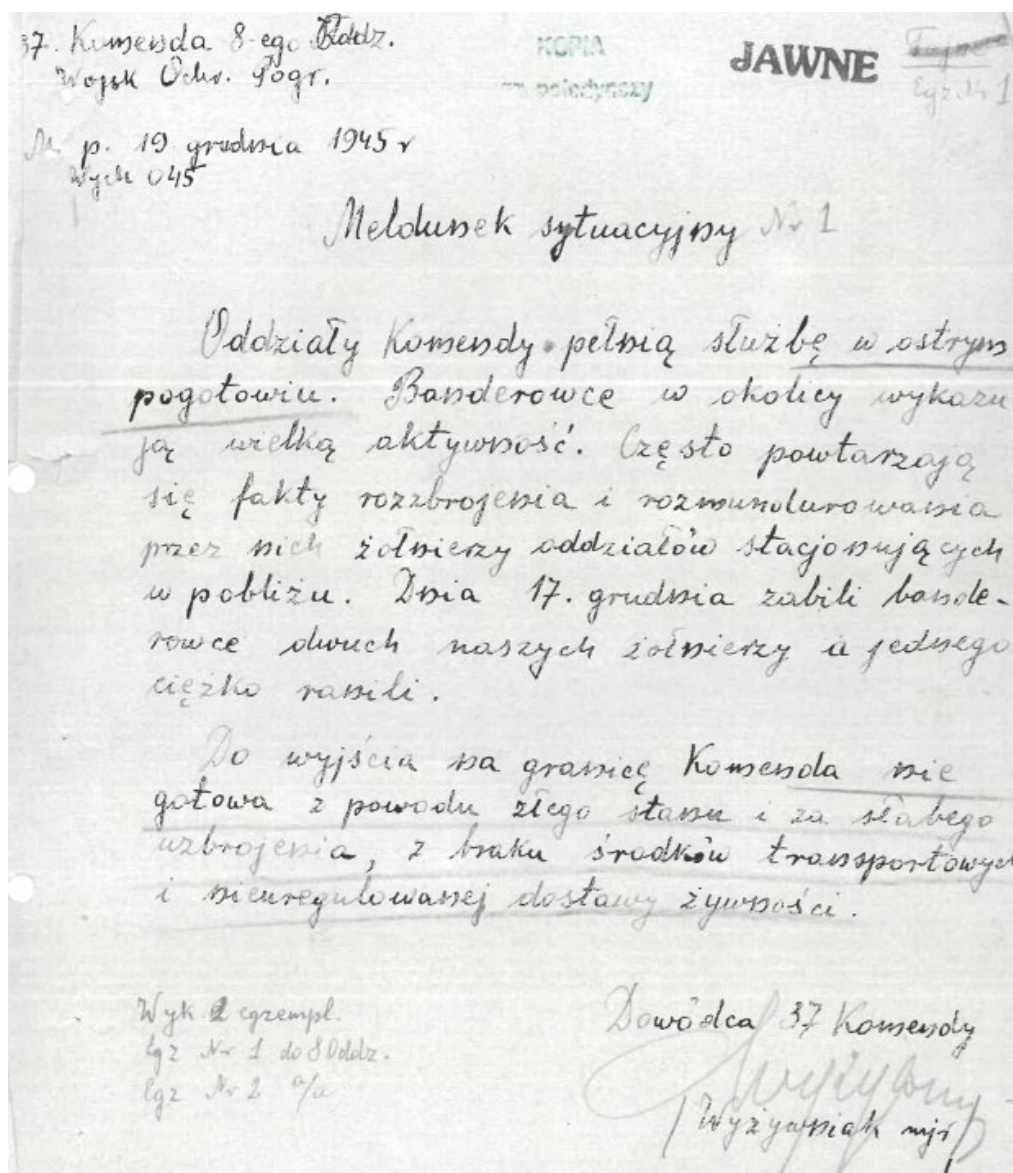 37. Komenda 8-ego Oddz.
Wojsk Ochr. Pogr.
KOPIA
JAWNE
Tajne
Egz. Nr 1
M. p. 19 grudnia 1945 r
Wych 045
Meldunek sytuacyjny Nr 1
Oddziały Komendy pełnią służbę w ostrym
pogotowiu. Banderowce w okolicy wykazu
ją wielką aktywność. Często powtarzają
się fakty rozzbrojenia i rozmundurowania
przez nich żołnierzy oddziałów stacjonujących
w pobliżu. Dnia 17. grudnia zabili bande-
rowce dwuch naszych żołnierzy a jednego
ciężko ranili.
Do wyjścia na granicę Komenda nie
gotowa z powodu złego stanu i za słabego
uzbrojenia, z braku środków transportowych
i nieuregulowanej dostawy żywności.
Wyk 2 egzempl.
Egz Nr 1 do 8 Oddz.
Egz Nr 2 a/a
Dowódca 37 Komendy
/Wyżywniak mjr/